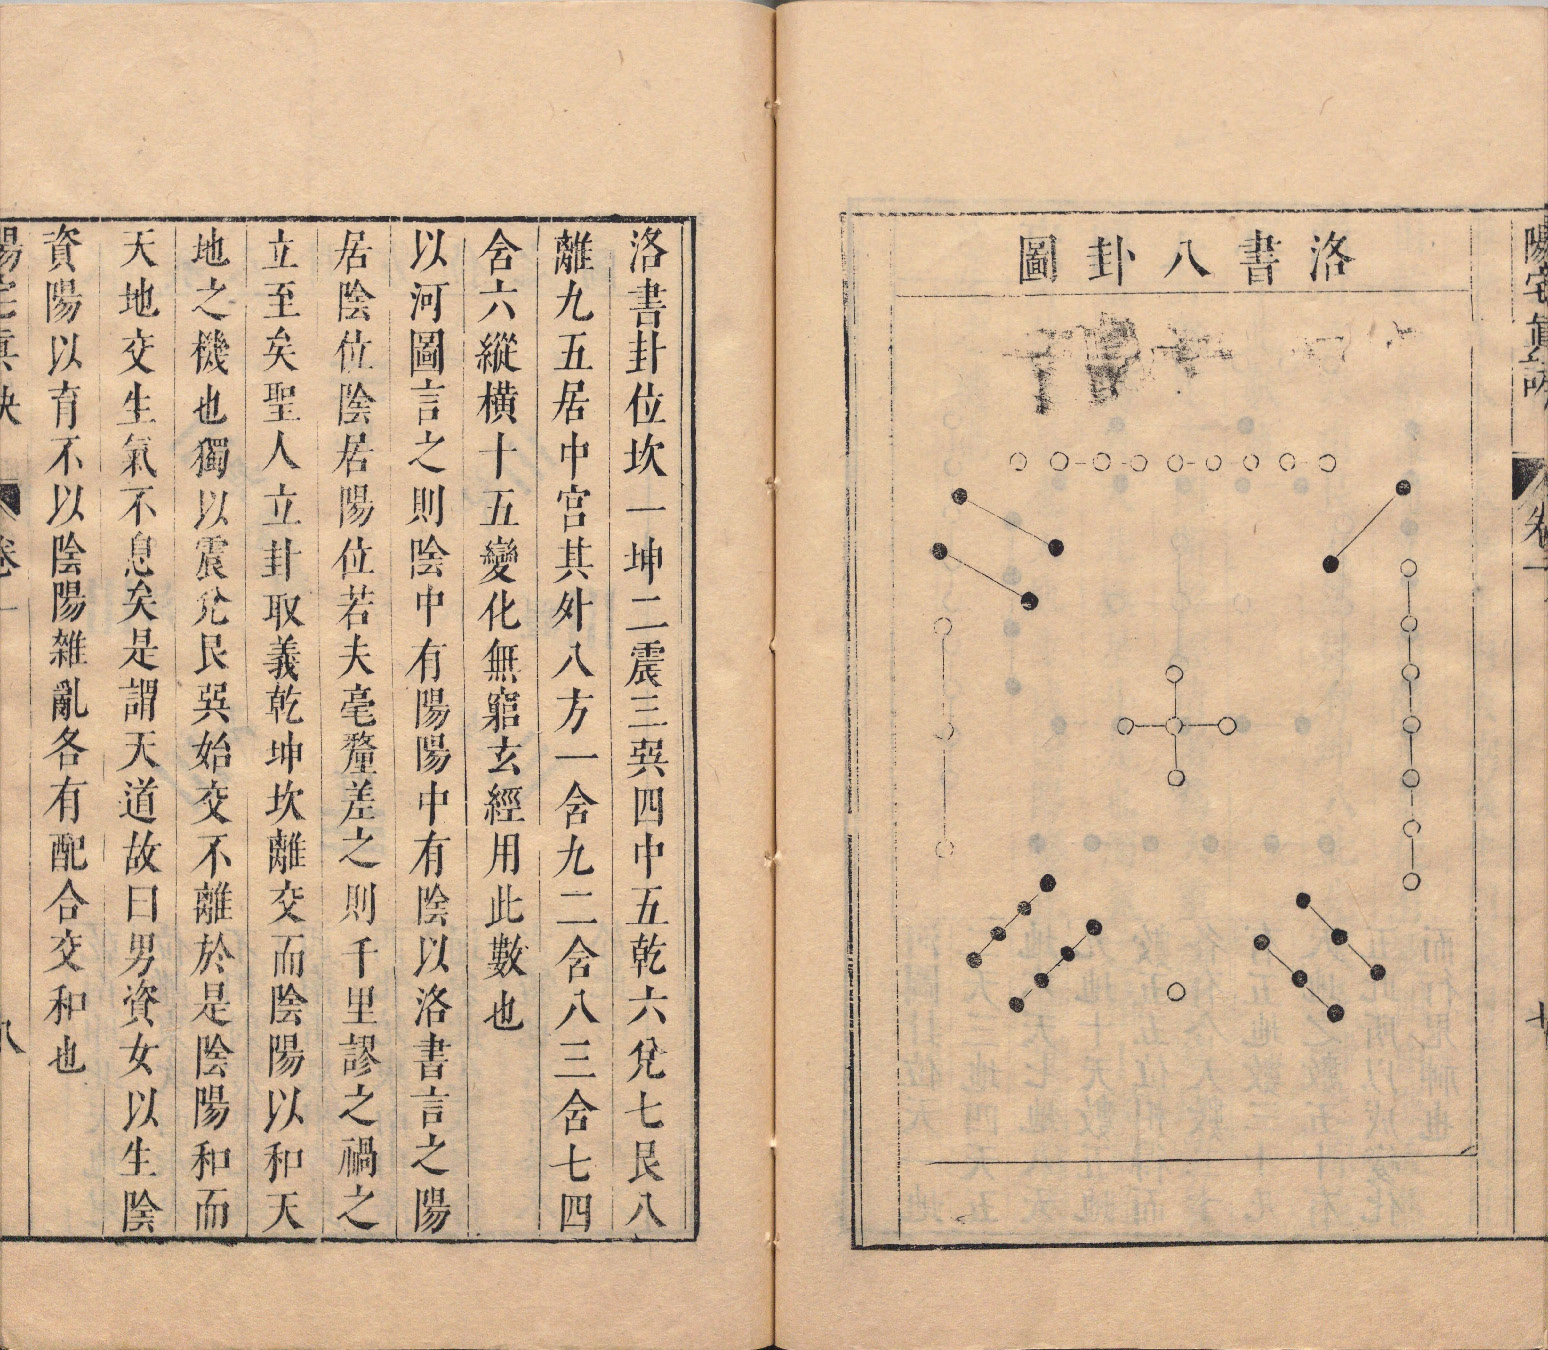 洛書八卦圖
洛書卦位坎一坤二震三巽四中五乾六兌七艮八
離九五居中宮其外八方一含九二含八三含七四
含六縱橫十五變化無窮玄經用此數也
以河圖言之則陰中有陽陽中有陰以洛書言之陽
居陰位陰居陽位若夫毫釐差之則千里謬之禍之
立至矣聖人立卦取義乾坤坎離交而陰陽以和天
地之機也獨以震兌艮巽始交不離於是陰陽和而
天地交生氣不息矣是謂天道故曰男資女以生陰
資陽以育不以陰陽雜亂各有配合交和也
陽宅真訣
卷一
八